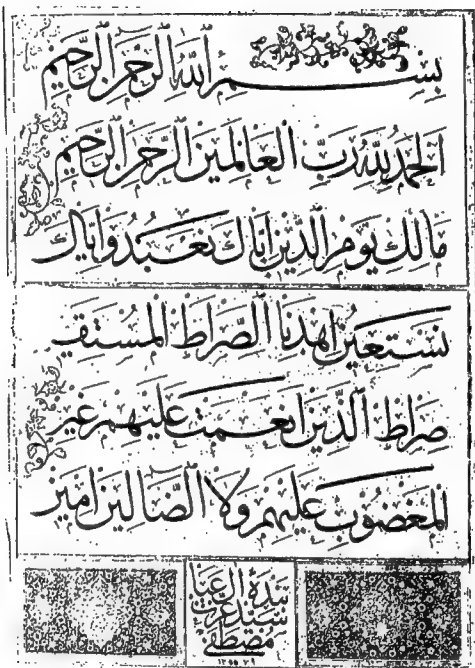 بسم الله الرحمن الرحيم
الحمد لله رب العالمين الرحمن الرحيم
مالك يوم الدين اياك نعبد واياك
نستعين اهدنا الصراط المستقيم
صراط الذين انعمت عليهم غير
المغضوب عليهم ولا الضالين امين
بنده آل عبا
سيد عزت
مصطفى